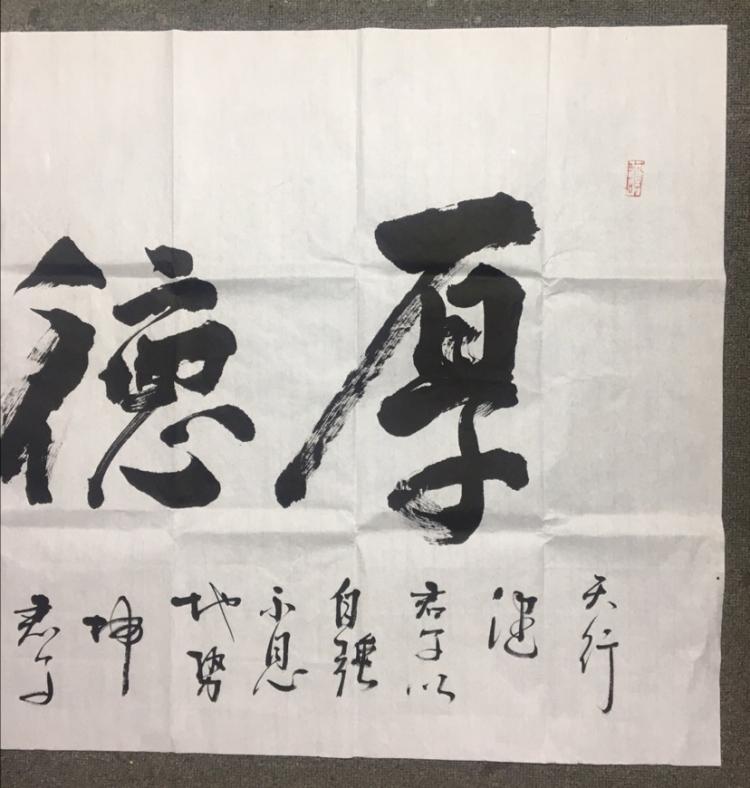 厚德
天行
健
君子以
自强
不息
地势
坤
君子